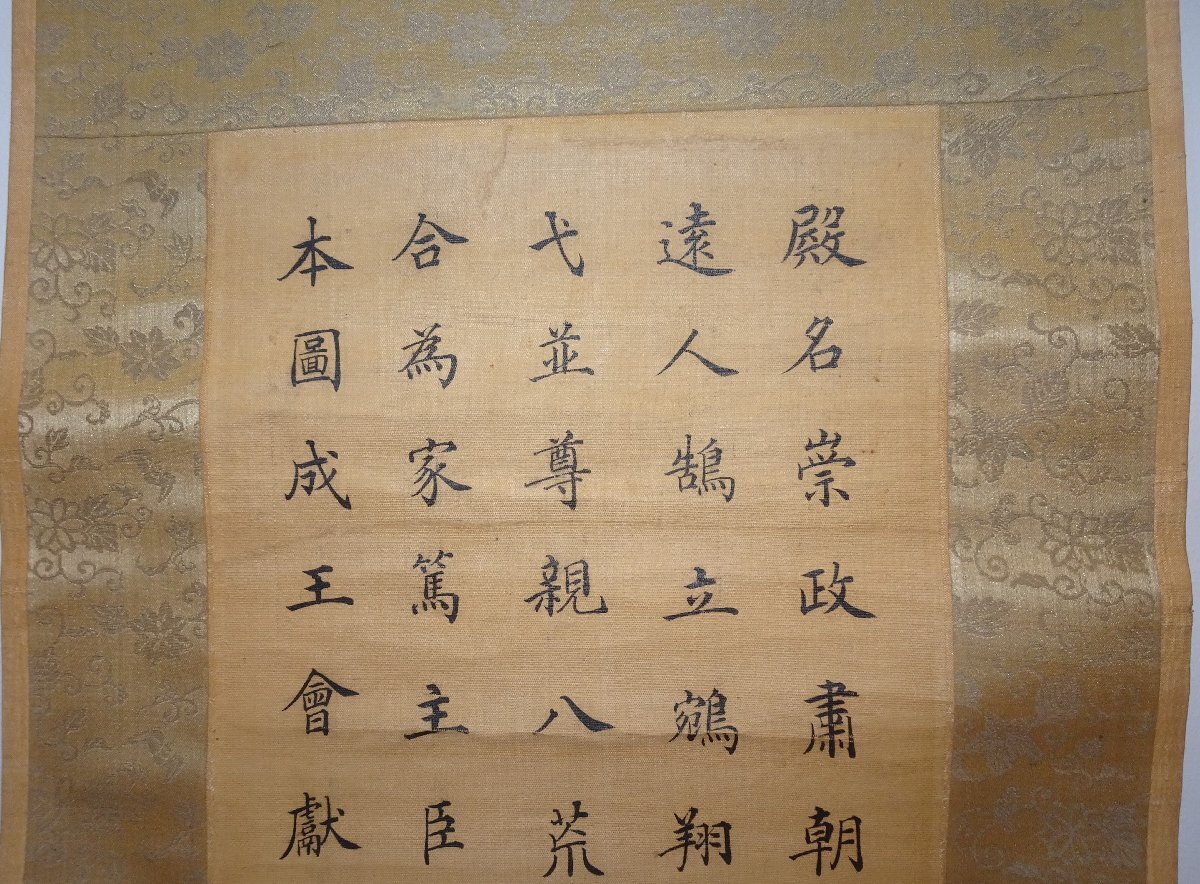 殿名崇政肅朝
遠人鵠立鵷翔
弋並尊親八荒
合為家篤主臣
本圖成王會獻